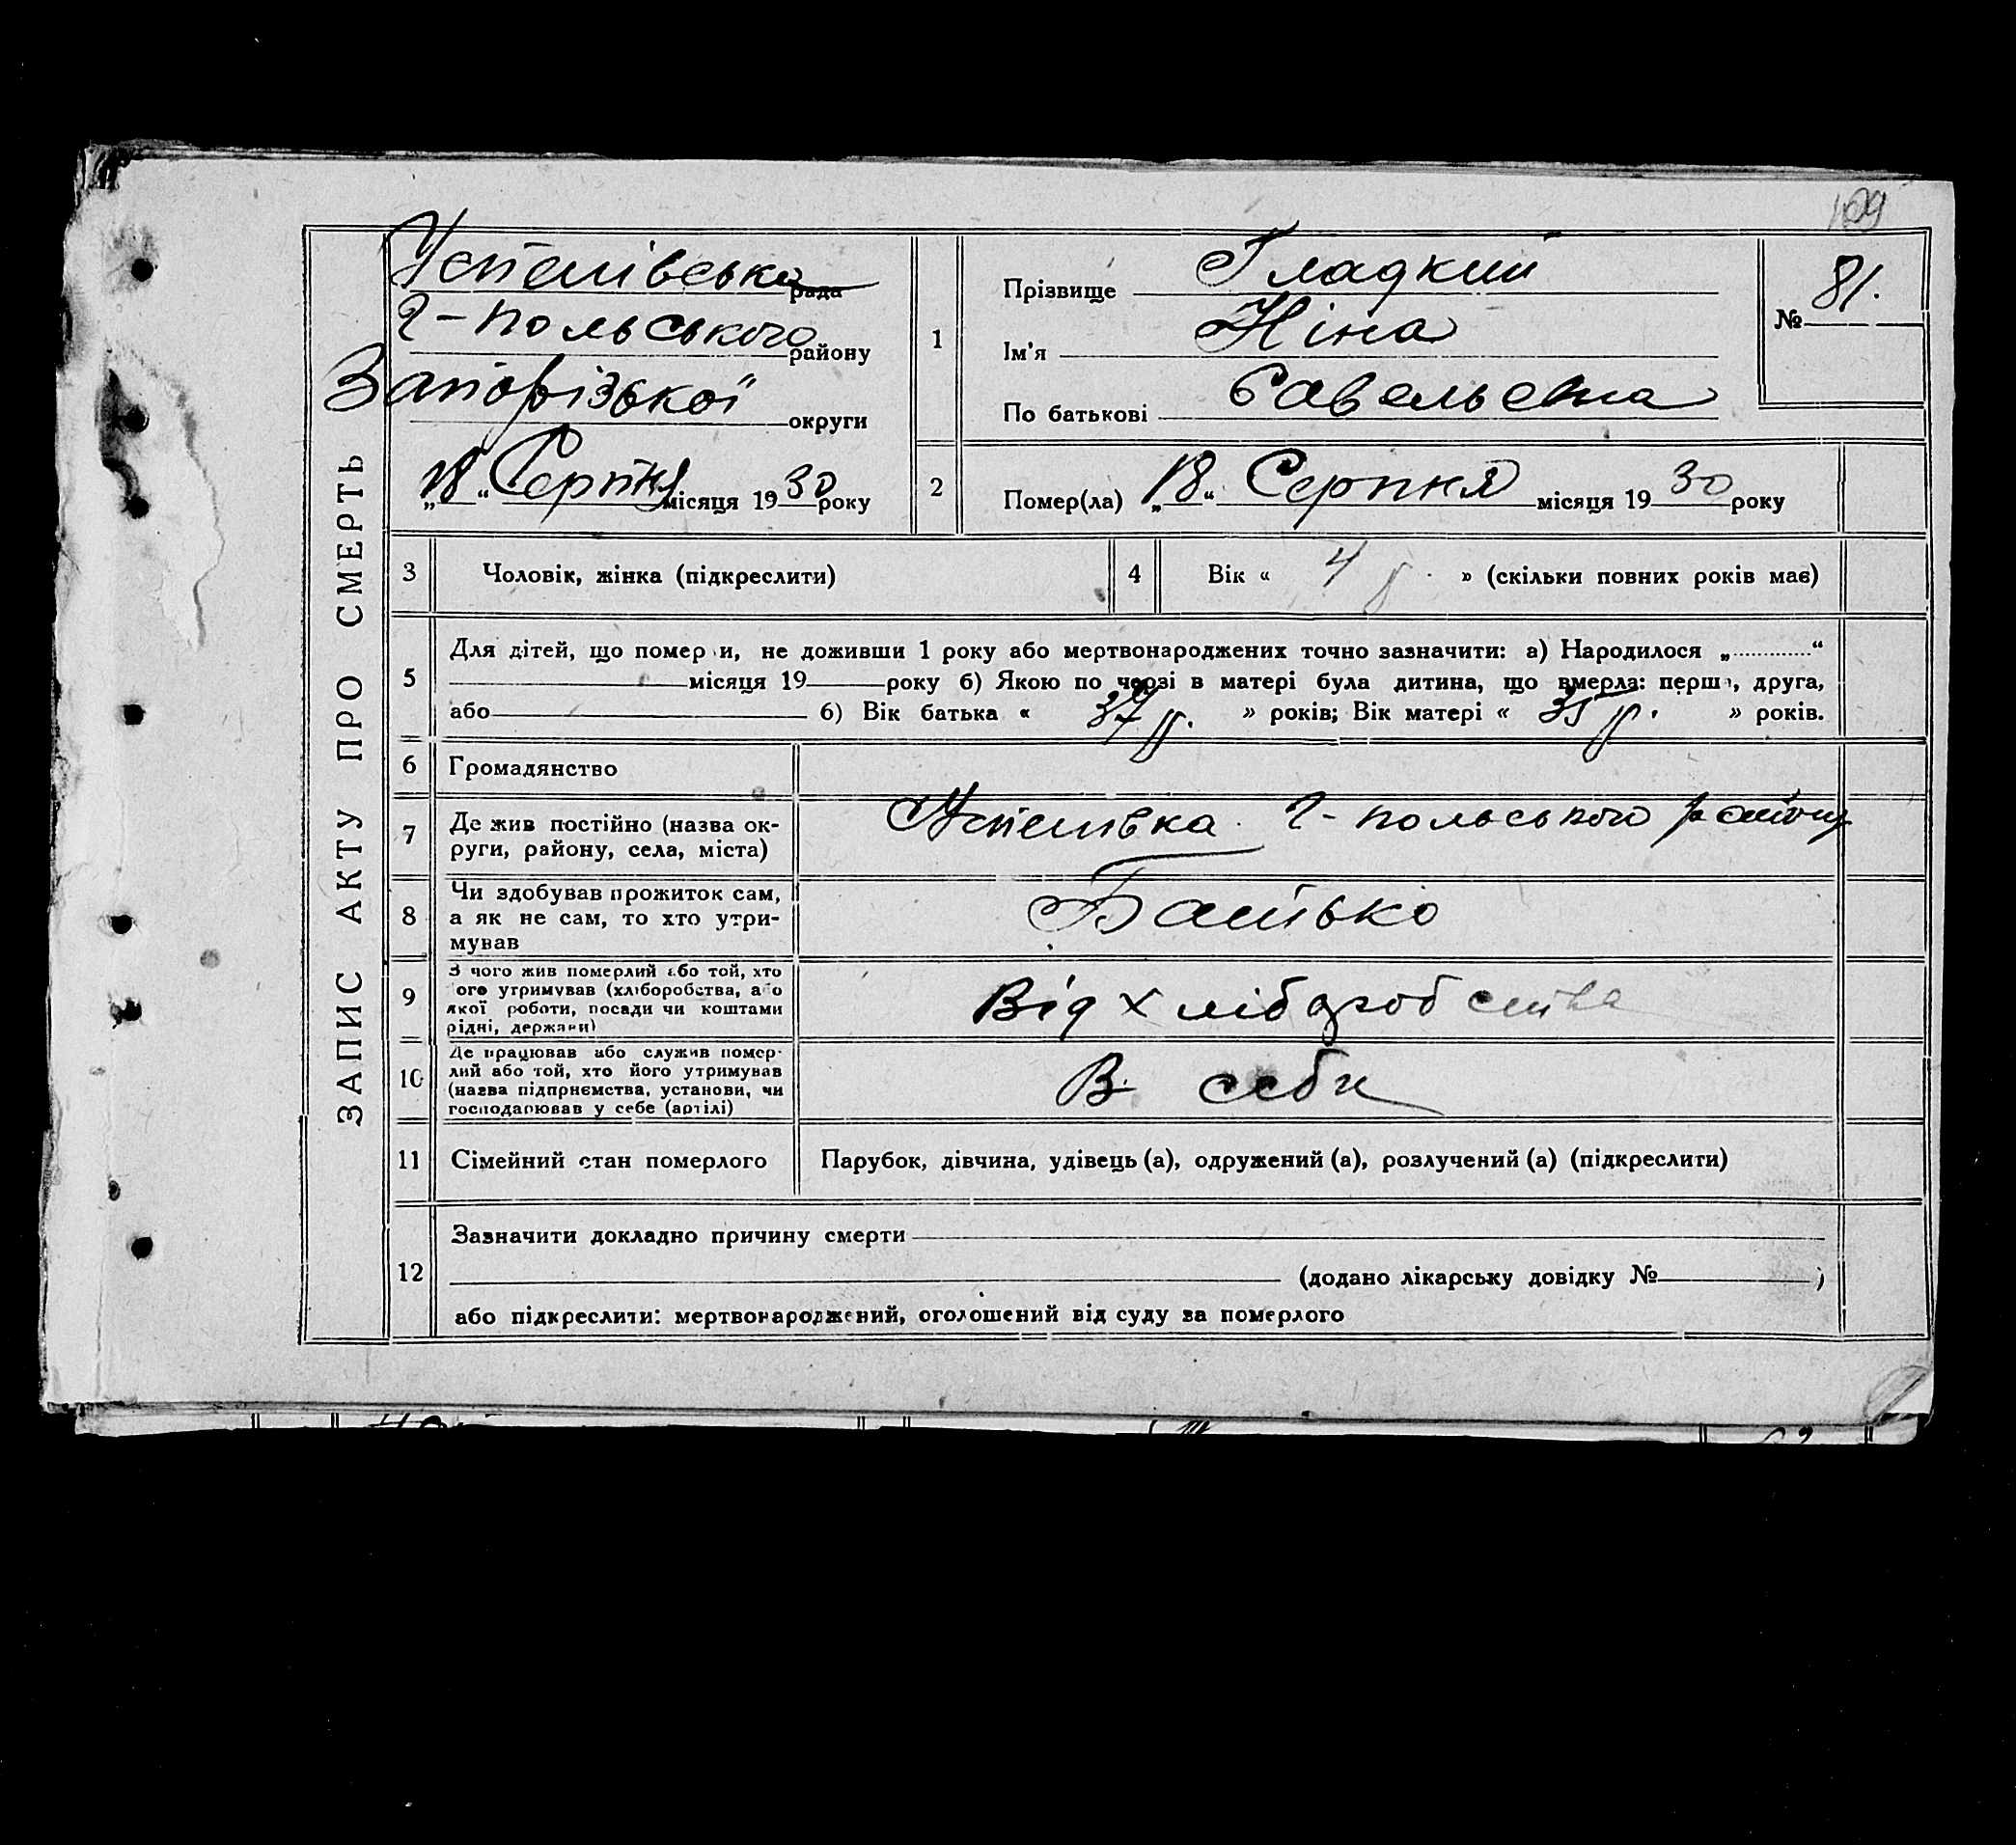 109
ЗАПИС АКТУ ПРО СМЕРТЬ
Успенівська рада
Г-польського району
Запорізької округи
„18“ Серпня місяця 1930 року
1
Прізвище Гладкий
Ім'я Ніна
По батькові Савельевна
№ 81.
2
Помер(ла) „18“ Серпня місяця 1930 року
3 Чоловік, жінка (підкреслити)
4 Вік « 4 р. » (скільки повних років має)
5
Для дітей, що померли, не доживши 1 року або мертвонароджених точно зазначити: а) Народилося „ “
місяця 19 року б) Якою по черзі в матері була дитина, що вмерла: перша, друга,
або б) Вік батька « 37 р. » років; Вік матері « 35 р. » років.
6 Громадянство
7 Де жив постійно (назва ок-
руги, району, села, міста)
Успенівка Г-польського району
8 Чи здобував прожиток сам,
а як не сам, то хто утри-
мував
Батько
9 З чого жив померлий або той, хто
його утримував (хліборобства, або
якої роботи, посади чи коштами
рідні, держави)
Від хліборобства
10 Де працював або служив помер-
лий або той, хто його утримував
(назва підприємства, установи, чи
господарював у себе (артілі)
В себи
11 Сімейний стан померлого Парубок, дівчина, удівець (а), одружений (а), розлучений (а) (підкреслити)
12
Зазначити докладно причину смерти
(додано лікарську довідку № )
або підкреслити: мертвонароджений, оголошений від суду за померлого